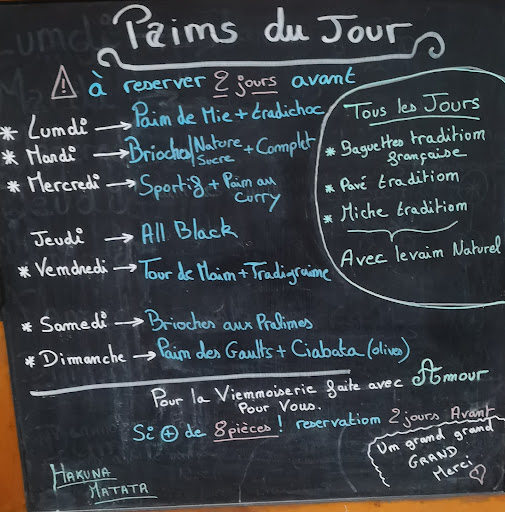 Pains du Jour
⚠ à reserver 2 jours avant
* Lundi → Pain de Mie + tradichoc
* Mardi → Brioches/Nature Sucre + Complet
* Mercredi → Sportif + Pain au Curry
Jeudi → All Black
* Vendredi → Tour de Main + Tradigraine
* Samedi → Brioches aux Pralines
* Dimanche → Pain des Gaults + Ciabata (olives)
Tous les Jours
* Baguettes tradition
française
* Pavé tradition
* Miche tradition
Avec levain Naturel
Pour la Viennoiserie faite avec Amour
Pour Vous.
Si ⊕ de 8 pièces ! reservation 2 jours Avant
Un grand grand
GRAND
Merci
HAKUNA
MATATA